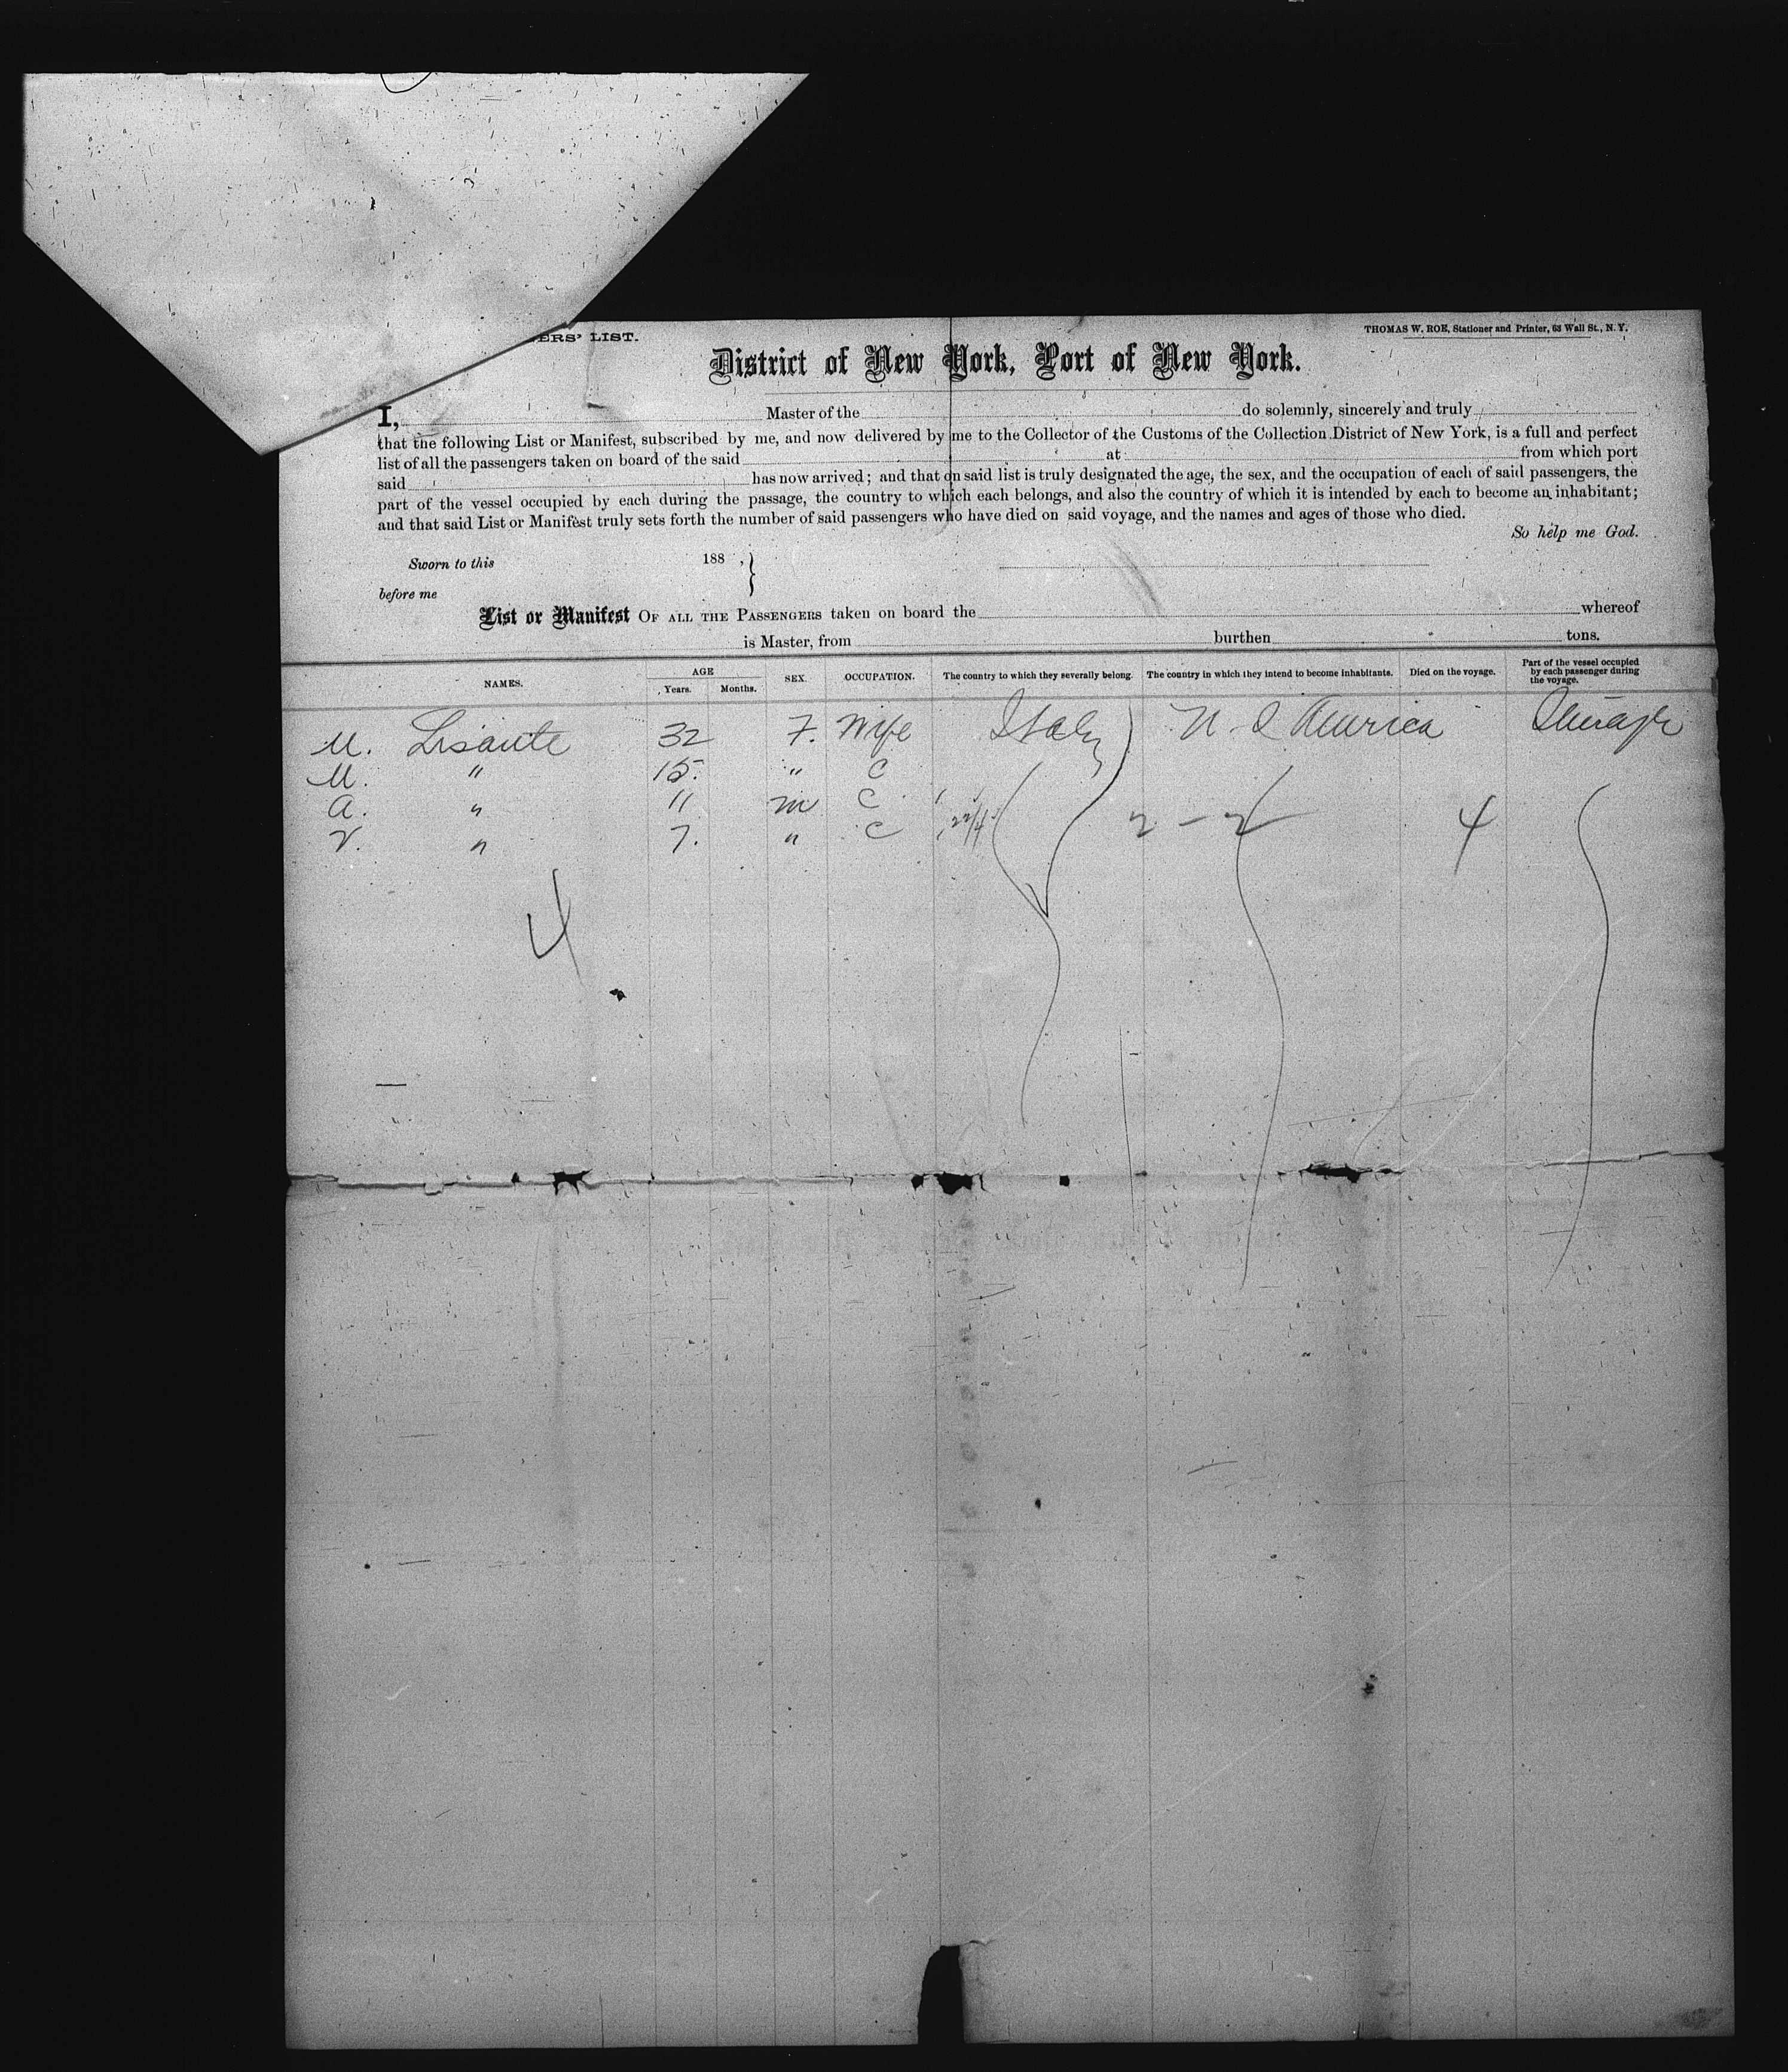 ERS' LIST.
THOMAS W. ROE, Stationer and Printer, 63 Wall St., N. Y.
District of New York, Port of New York.
I, Master of the do solemnly, sincerely and truly
that the following List or Manifest, subscribed by me, and now delivered by me to the Collector of the Customs of the Collection District of New York, is a full and perfect
list of all the passengers taken on board of the said at from which port
said has now arrived; and that on said list is truly designated the age, the sex, and the occupation of each of said passengers, the
part of the vessel occupied by each during the passage, the country to which each belongs, and also the country of which it is intended by each to become an inhabitant;
and that said List or Manifest truly sets forth the number of said passengers who have died on said voyage, and the names and ages of those who died.
So help me God.
Sworn to this 188 , }
before me
List or Manifest OF ALL THE PASSENGERS taken on board the whereof
is Master, from burthen tons.
NAMES. AGE Years. Months. SEX. OCCUPATION. The country to which they severally belong. The country in which they intend to become inhabitants. Died on the voyage. Part of the vessel occupied by each passenger during the voyage.
M. Lisante 32 F. Wife Italy America
M. " 15. " C
A. " 11 m C
V. " 7. " C 2 - 2 4
4